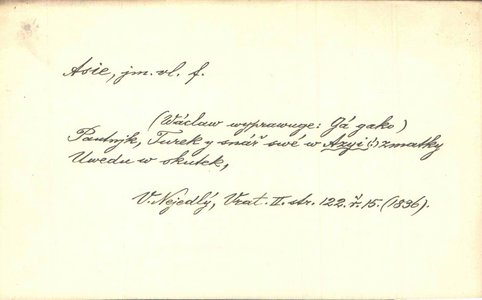 Asie, jm. vl. f.
(Wáclaw wyprawuge: Gá gako)
Pautnjk, Turek y snář swé w Azyi (!) zmatky
Uwedu w skutek,
V. Nejedlý, Vrat. II. str. 122. ř. 15. (1836).